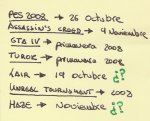 PES 2008 → 26 Octubre
ASSASSIN'S CREED → 9 Noviembre
GTA IV → primavera 2008
TUROK → primavera 2008
LAIR → 19 octubre ¿?
UNREAL TOURNAMENT → 2008
HAZE → Noviembre ¿?